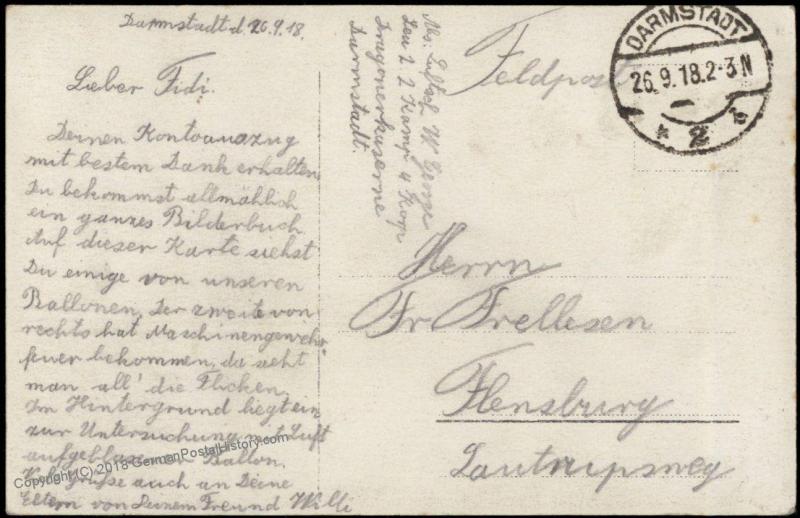 Darmstadt d. 26.9.18.
Lieber Fidi.
Deinen Kontoauszug
mit bestem Dank erhalten.
Du bekommst allmählich
ein ganzes Bilderbuch
Auf dieser Karte siehst
Du einige von unseren
Ballonen, der zweite von
rechts hat Maschinengewehr
feuer bekommen, da sieht
man all' die Flicken.
Im Hintergrund liegt ein
zur Untersuchung mit Luft
aufgeblasener Ballon.
Grüße auch an Deine
Eltern von Deinem Freund Willi
Abs: Luftsch W
2 Komp 4 Korp
Dragonerkaserne
Darmstadt.
Feldpost
DARMSTADT
26.9.18.2-3N
* 2 *
Herrn
Fr Frellesen
Flensburg
Lautrupsweg
Copyright (C) 2018 GermanPostalHistory.com